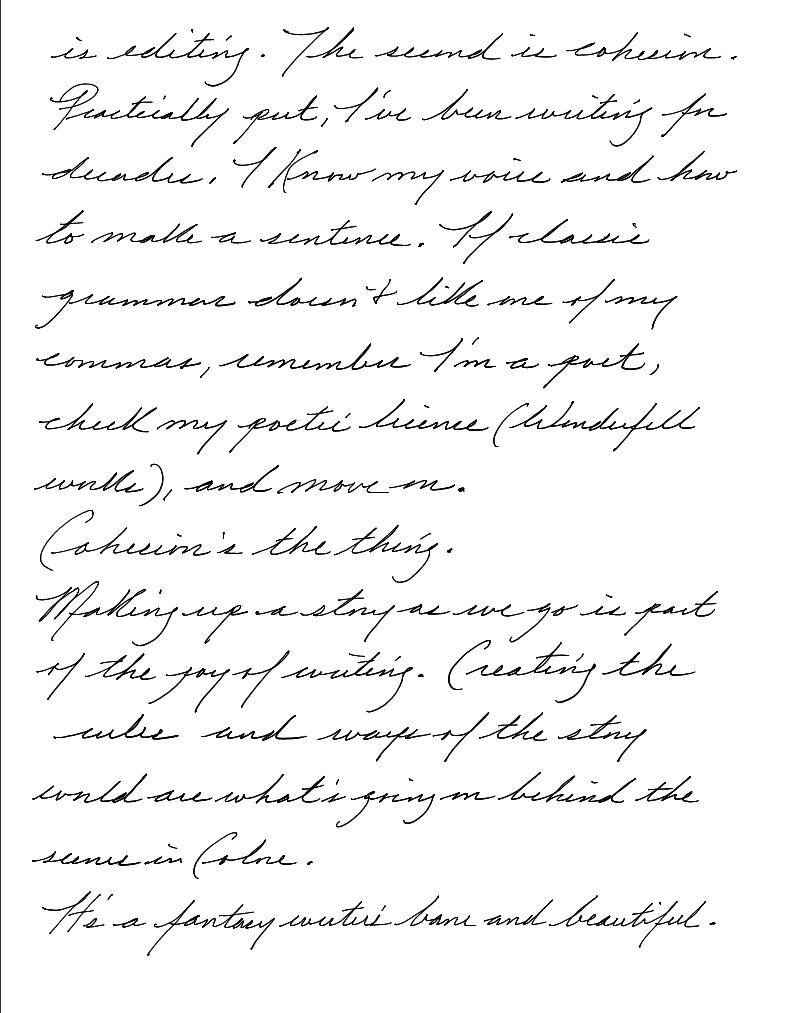 is editing. The second is cohesion.
Practically put, I've been writing for
decades. I know my voice and how
to make a sentence. If classic
grammar doesn't like one of my
commas, remember I'm a poet,
check my poetic license (Wonderfell
works), and move on.
Cohesion's the thing.
Making up a story as we go is part
of the joy of writing. Creating the
rules and ways of the story
world are what's going on behind the
scenes in Colne.
It's a fantasy writer's bane and beautiful.